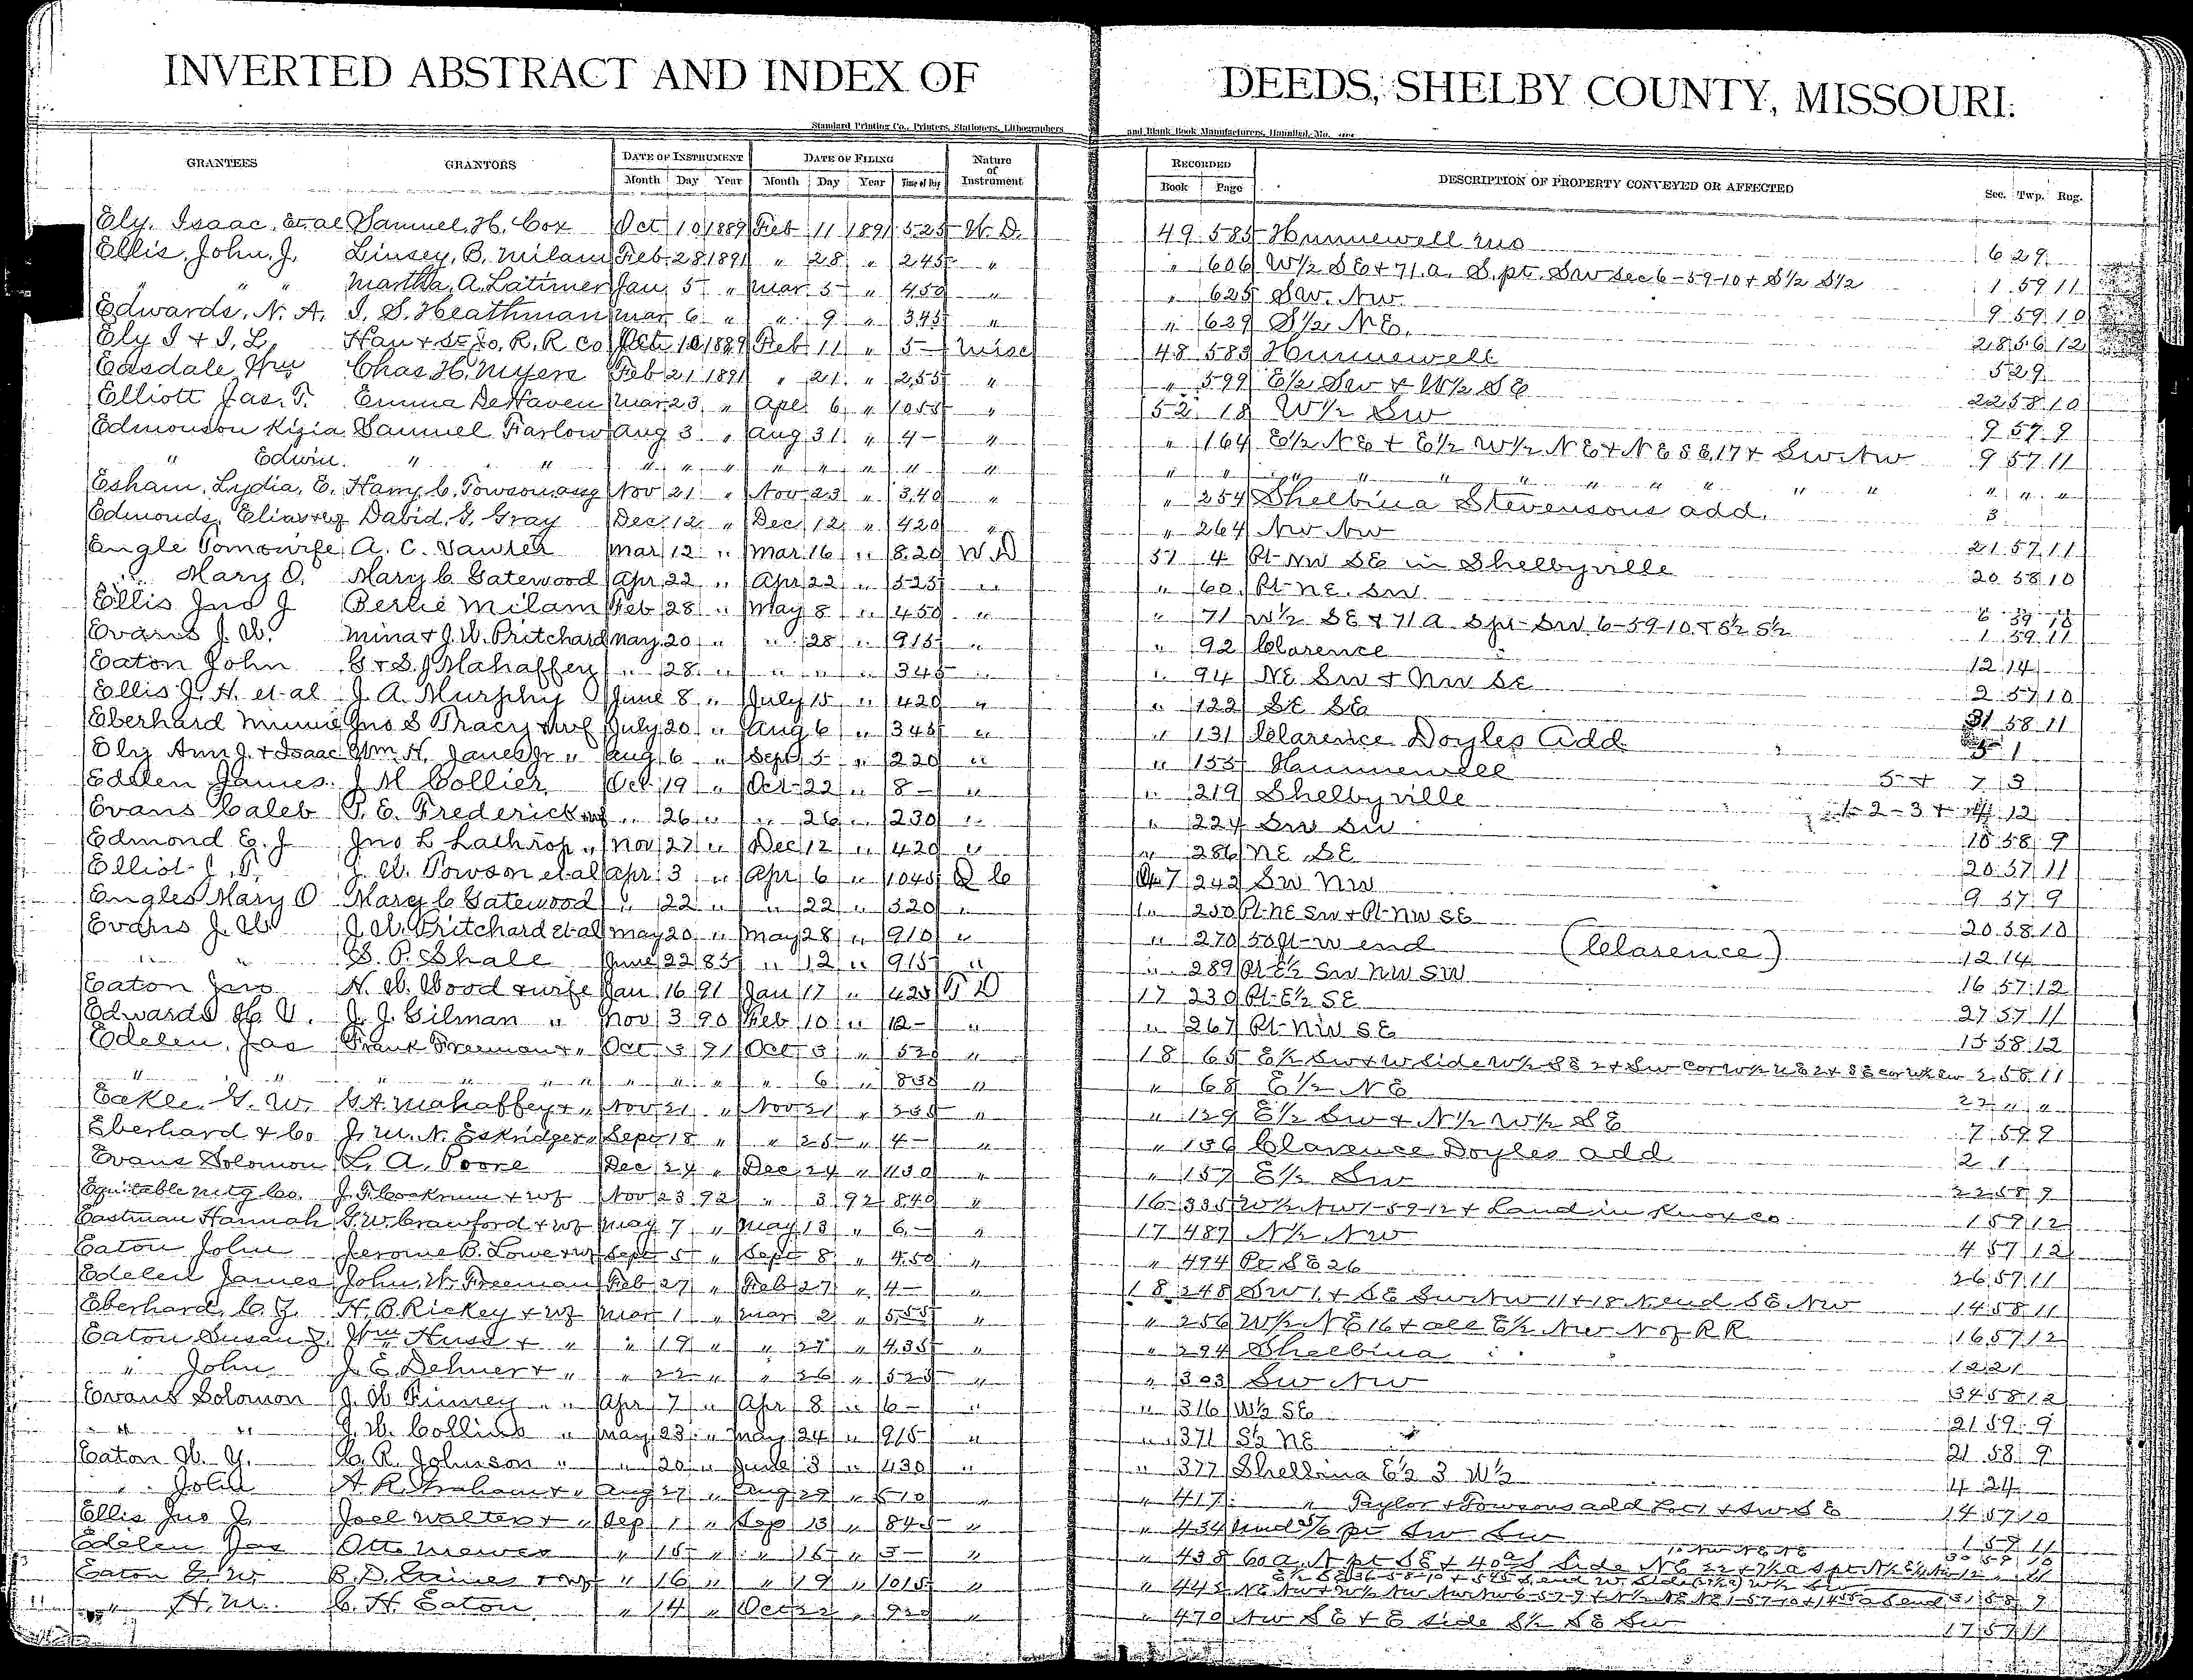 INVERTED ABSTRACT AND INDEX OF DEEDS, SHELBY COUNTY, MISSOURI.
Standard Printing Co., Printers, Stationers, Lithographers and Blank Book Manufacturers, Hannibal, Mo.
GRANTEES GRANTORS DATE OF INSTRUMENT DATE OF FILING Nature of Instrument RECORDED DESCRIPTION OF PROPERTY CONVEYED OR AFFECTED Sec. Twp. Rng.
Month Day Year Month Day Year Time of Day Book Page
Ely, Isaac, Et al Samuel, H. Cox Oct 10 1889 Feb 11 1891 525 W.D. 49 585 Hunnewell 6 29
Ellis, John, J. Linsey, B. Milam Feb 28 1891 " 28 " 245 " " 606 W½ SE + 71. a. S. pt. SW Sec 6-59-10 + S½ S½ 1 59 11
" " " Martha, A. Latimer Jan 5 " Mar 5 " 450 " " 625 SW. NW 9 59 10
Edwards, N. A. I. S. Heathman Mar 6 " " 9 " 345 " " 629 S½ NE. 28 56 12
Ely I + I, L, Han + St Jo, R. R Co Oct 10 1889 Feb 11 " 5- Misc 48 583 Hunnewell 5 29
Easdale, Wm Chas H. Myers Feb 21 1891 " 21 " 255 " " 599 E½ SW + W½ SE 22 58 10
Elliott Jas. T. Emma DeHaven Mar 23 " Apl 6 " 1055 " 52 18 W½ SW 9 57 9
Edmonson Kizia Samuel Farlow Aug 3 " Aug 31 " 4- " " 164 E½ NE + E½ W½ NE + NE SE 17 + SW NW 9 57 11
" Edwin " " " " " " " " " " " " " " " " " " "
Esham, Lydia, E. Harry, C. Towson, assg Nov 21 " Nov 23 " 340 " " 254 Shelbina Stevensons add. 3
Edmonds, Elias + wf David. G. Gray Dec 12 " Dec 12 " 420 " " 264 NW NW 21 57 11
Engle Tom wife A. C. Vawter Mar 12 " Mar 16 " 820 W D 51 4 Pt NW SE in Shelbyville 20 58 10
" Mary O. Mary C Gatewood Apr 22 " Apr 22 " 525 " " 60 Pt NE. SW
Ellis Jno J Bertie Milam Feb 28 " May 8 " 450 " " 71 W½ SE + 71 a S pt SW 6-59-10 + S½ S½ 1 59 11
Evans J. W. Mina + J. W. Pritchard May 20 " " 28 " 915 " " 92 Clarence 12 14
Eaton John G + S. J Mahaffey " 28 " " " " 345 " " 94 NE SW + NW SE 2 57 10
Ellis J. H. et al J. A. Murphy June 8 " July 15 " 420 " " 122 SE SE 31 58 11
Eberhard Minnie Jno S Tracy + wf July 20 " Aug 6 " 345 " " 131 Clarence Doyles Add 5 1
Ely Ann J. + Isaac Wm. H. Janes Jr " Aug 6 " Sept 5 " 220 " " 155 Hunnewell 5 + 7 3
Edelen James J M Collier Oct 19 " Oct 22 " 8- " " 219 Shelbyville 1-2-3 + 4 12
Evans Caleb P. E. Frederick wf " 26 " " 26 " 230 " " 224 SW SW 15 58 9
Edmond E. J Jno L Lathrop " Nov 27 " Dec 12 " 420 " " 286 NE SE 20 57 11
Elliot J. T. J. W. Towson et al Apr 3 " Apr 6 " 1045 Q C 47 242 SW NW 9 57 9
Engles Mary O Mary C Gatewood " 22 " " 22 " 520 " " 250 Pt NE SW + Pt NW SE 20 58 10
Evans J. W. J. W. Pritchard et al May 20 " May 28 " 910 " " 270 50 ft W end (Clarence) 12 14
" " S. P. Shale June 22 85 " 12 " 915 " " 289 Pt E½ SW NW SW 16 57 12
Eaton Jno N. W. Wood + wife Jan 16 91 Jan 17 " 425 T D 17 230 Pt E½ SE 27 57 11
Edwards H. V. J. J. Gilman " Nov 3 90 Feb 10 " 12- " " 267 Pt NW SE 15 58 12
Edelen, Jas Frank Freeman + " Oct 3 91 Oct 3 " 520 " 18 65 E½ SW + W Side W½ SE 2 + SW Cor W½ NE 2 + SE cor W½ SW 2 58 11
" " " " " " " " " 6 " 830 " " 68 E½ NE 22 " "
Eakle. G. W. G A Mahaffey + " Nov 21 " Nov 21 " 235 " " 129 E½ SW + N½ W½ SE 7 59 9
Eberhard + Co J. M. N. Eskridge + " Sept 18 " " 25 " 4- " " 136 Clarence Doyles add 2 1
Evans Solomon L. A. Poore Dec 24 " Dec 24 " 1130 " " 157 E½ SW 22 58 9
Equitable Mtg Co. J. F. Cockrum + wf Nov 23 92 " 3 92 840 " 16 335 W½ NW 1-59-12 + Land in Knox Co 1 59 12
Eastman Hannah G. W. Crawford + wf May 7 " May 13 " 6- " 17 487 N½ NW 4 57 12
Eaton John Jerome B. Lowe + wf Sept 5 " Sept 8 " 450 " " 494 Pt SE 26 26 57 11
Edelen James John, W. Freeman Feb 27 " Feb 27 " 4- " 18 248 SW 1 + SE SW NW 11 + 18 N end SE NW 14 58 11
Eberhard, C. J. H. B. Rickey + wf Mar 1 " Mar 2 " 555 " " 256 W½ NE 16 + all E½ NW N of RR 16 57 12
Eaton Susan J. Wm Huss + " " 19 " " 27 " 435 " " 294 Shelbina 12 21
" John J. E. Dehner + " " 22 " " 26 " 525 " " 303 SW NW 34 58 12
Evans Solomon J. W Finney " " Apr 7 " Apr 8 " 6- " " 316 W½ SE 21 59 9
" " J. W. Collins " May 23 " May 24 " 915 " " 371 S½ NE 21 58 9
Eaton W. Y. C. R. Johnson " " 20 " June 3 " 430 " " 377 Shelbina E½ 3 W½ 4 24
" John A. R. Graham + " Aug 27 " Aug 29 " 510 " " 417 " Taylor + Towsons add Lot 1 + SW SE 14 57 10
Ellis Jno J. Joel Walter + " Sep 1 " Sep 13 " 845 " " 434 Und 5/6 pt SW SW 1 59 11
Edelen Jas Otto Mewes " 15 " " 15 " 3- " " 438 60 a. N pt SE + 40 a S Side NE 22
Eaton G. W. B. D. Gaines + wf " 16 " " 19 " 1015 " " 445 31 58 9
" H. M. C. H. Eaton " 14 " Oct 22 " 920 " " 470 NW SE + E side S½ SE SW 17 57 11